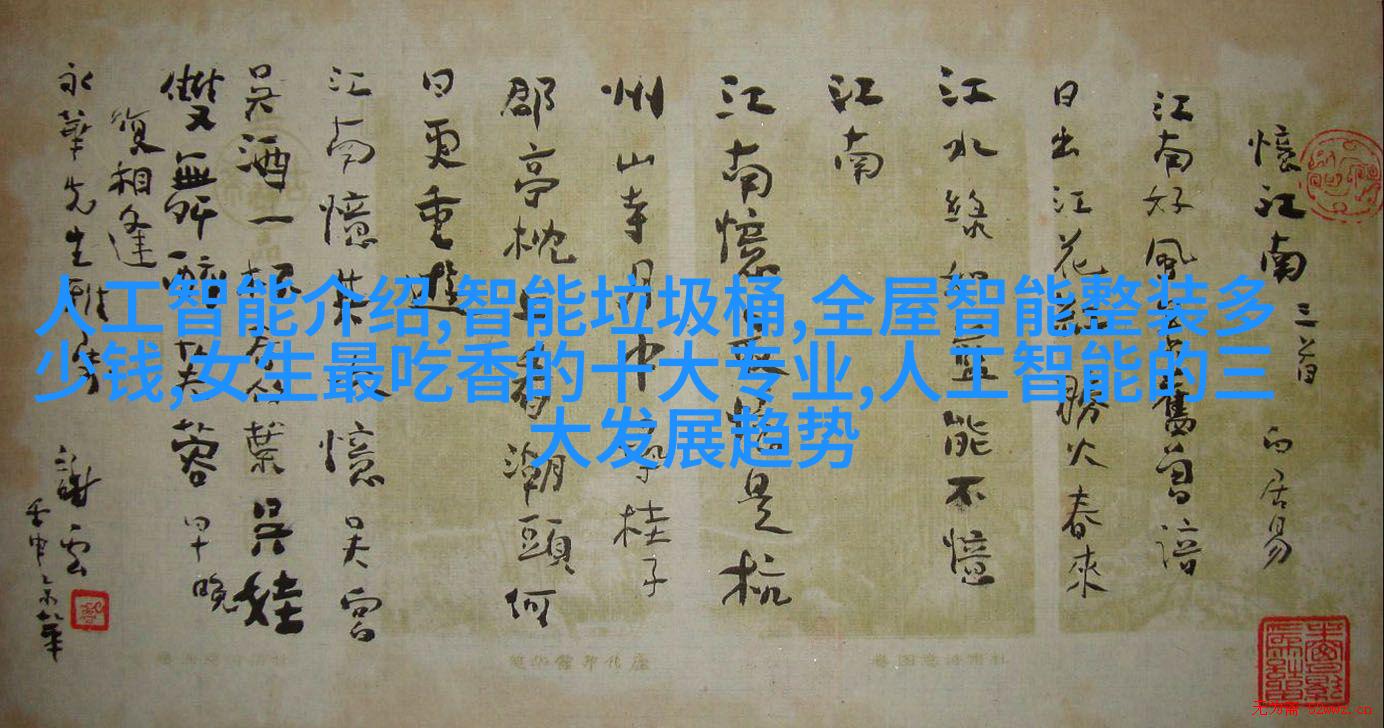 人工智能介绍,智能垃圾桶,全屋智能整装多
少钱,女生最吃香的十大专业,人工智能的三
大发展趋势
憶江南 三首 白居易
江南好風景舊曾諳
日出江花紅勝火春來
江水綠如藍能不憶
江南
江南憶最憶是杭
州山寺月中尋桂子
郡亭枕上看潮頭何
日更重遊
江南憶其次憶吳宮
吳酒一杯春竹葉吳娃
雙舞醉芙蓉早晚
復相逢
永華先生雅
謝雲